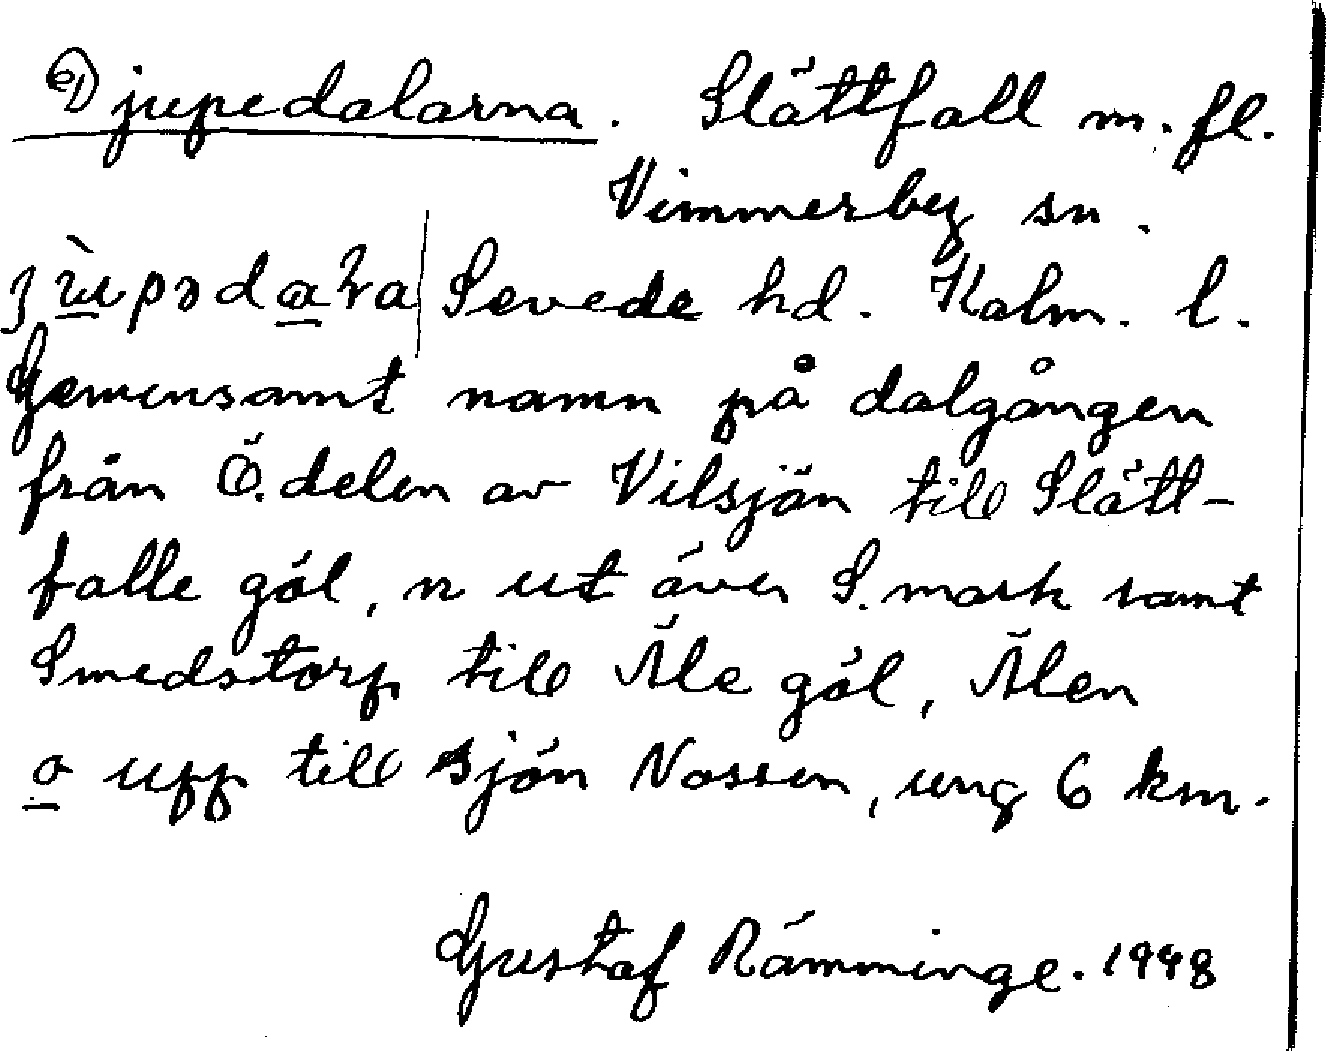 Djupedalarna. Slättfall m. fl.
Vimmerby sn.
Sevede hd. Kalm. l.
Gemensamt namn på dalgången
från Ö. delen av Vilsjön till Slätt-
falle göl, n ut över S. mark samt
Smedstorp till Äle göl, Älen
o upp till sjön Nossen, ung 6 km.
Gustaf Rämminge. 1948